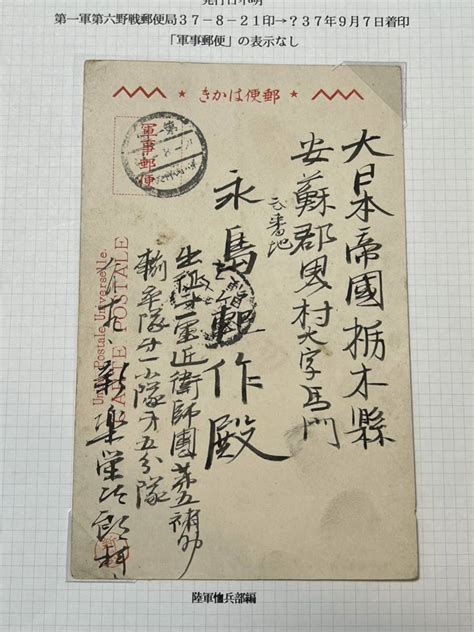 発行日不明
第一軍第六野戦郵便局37-8-21印→?37年9月7日着印
「軍事郵便」の表示なし
きかは便郵
軍事郵便
Union Postale Universelle.
CARTE POSTALE
大日本帝國栃木縣
安蘇郡 村大字馬門
番地
永島 作殿
出征第一軍近衛師團第五補助
輸卒隊第一小隊第五分隊
陸軍恤兵部編